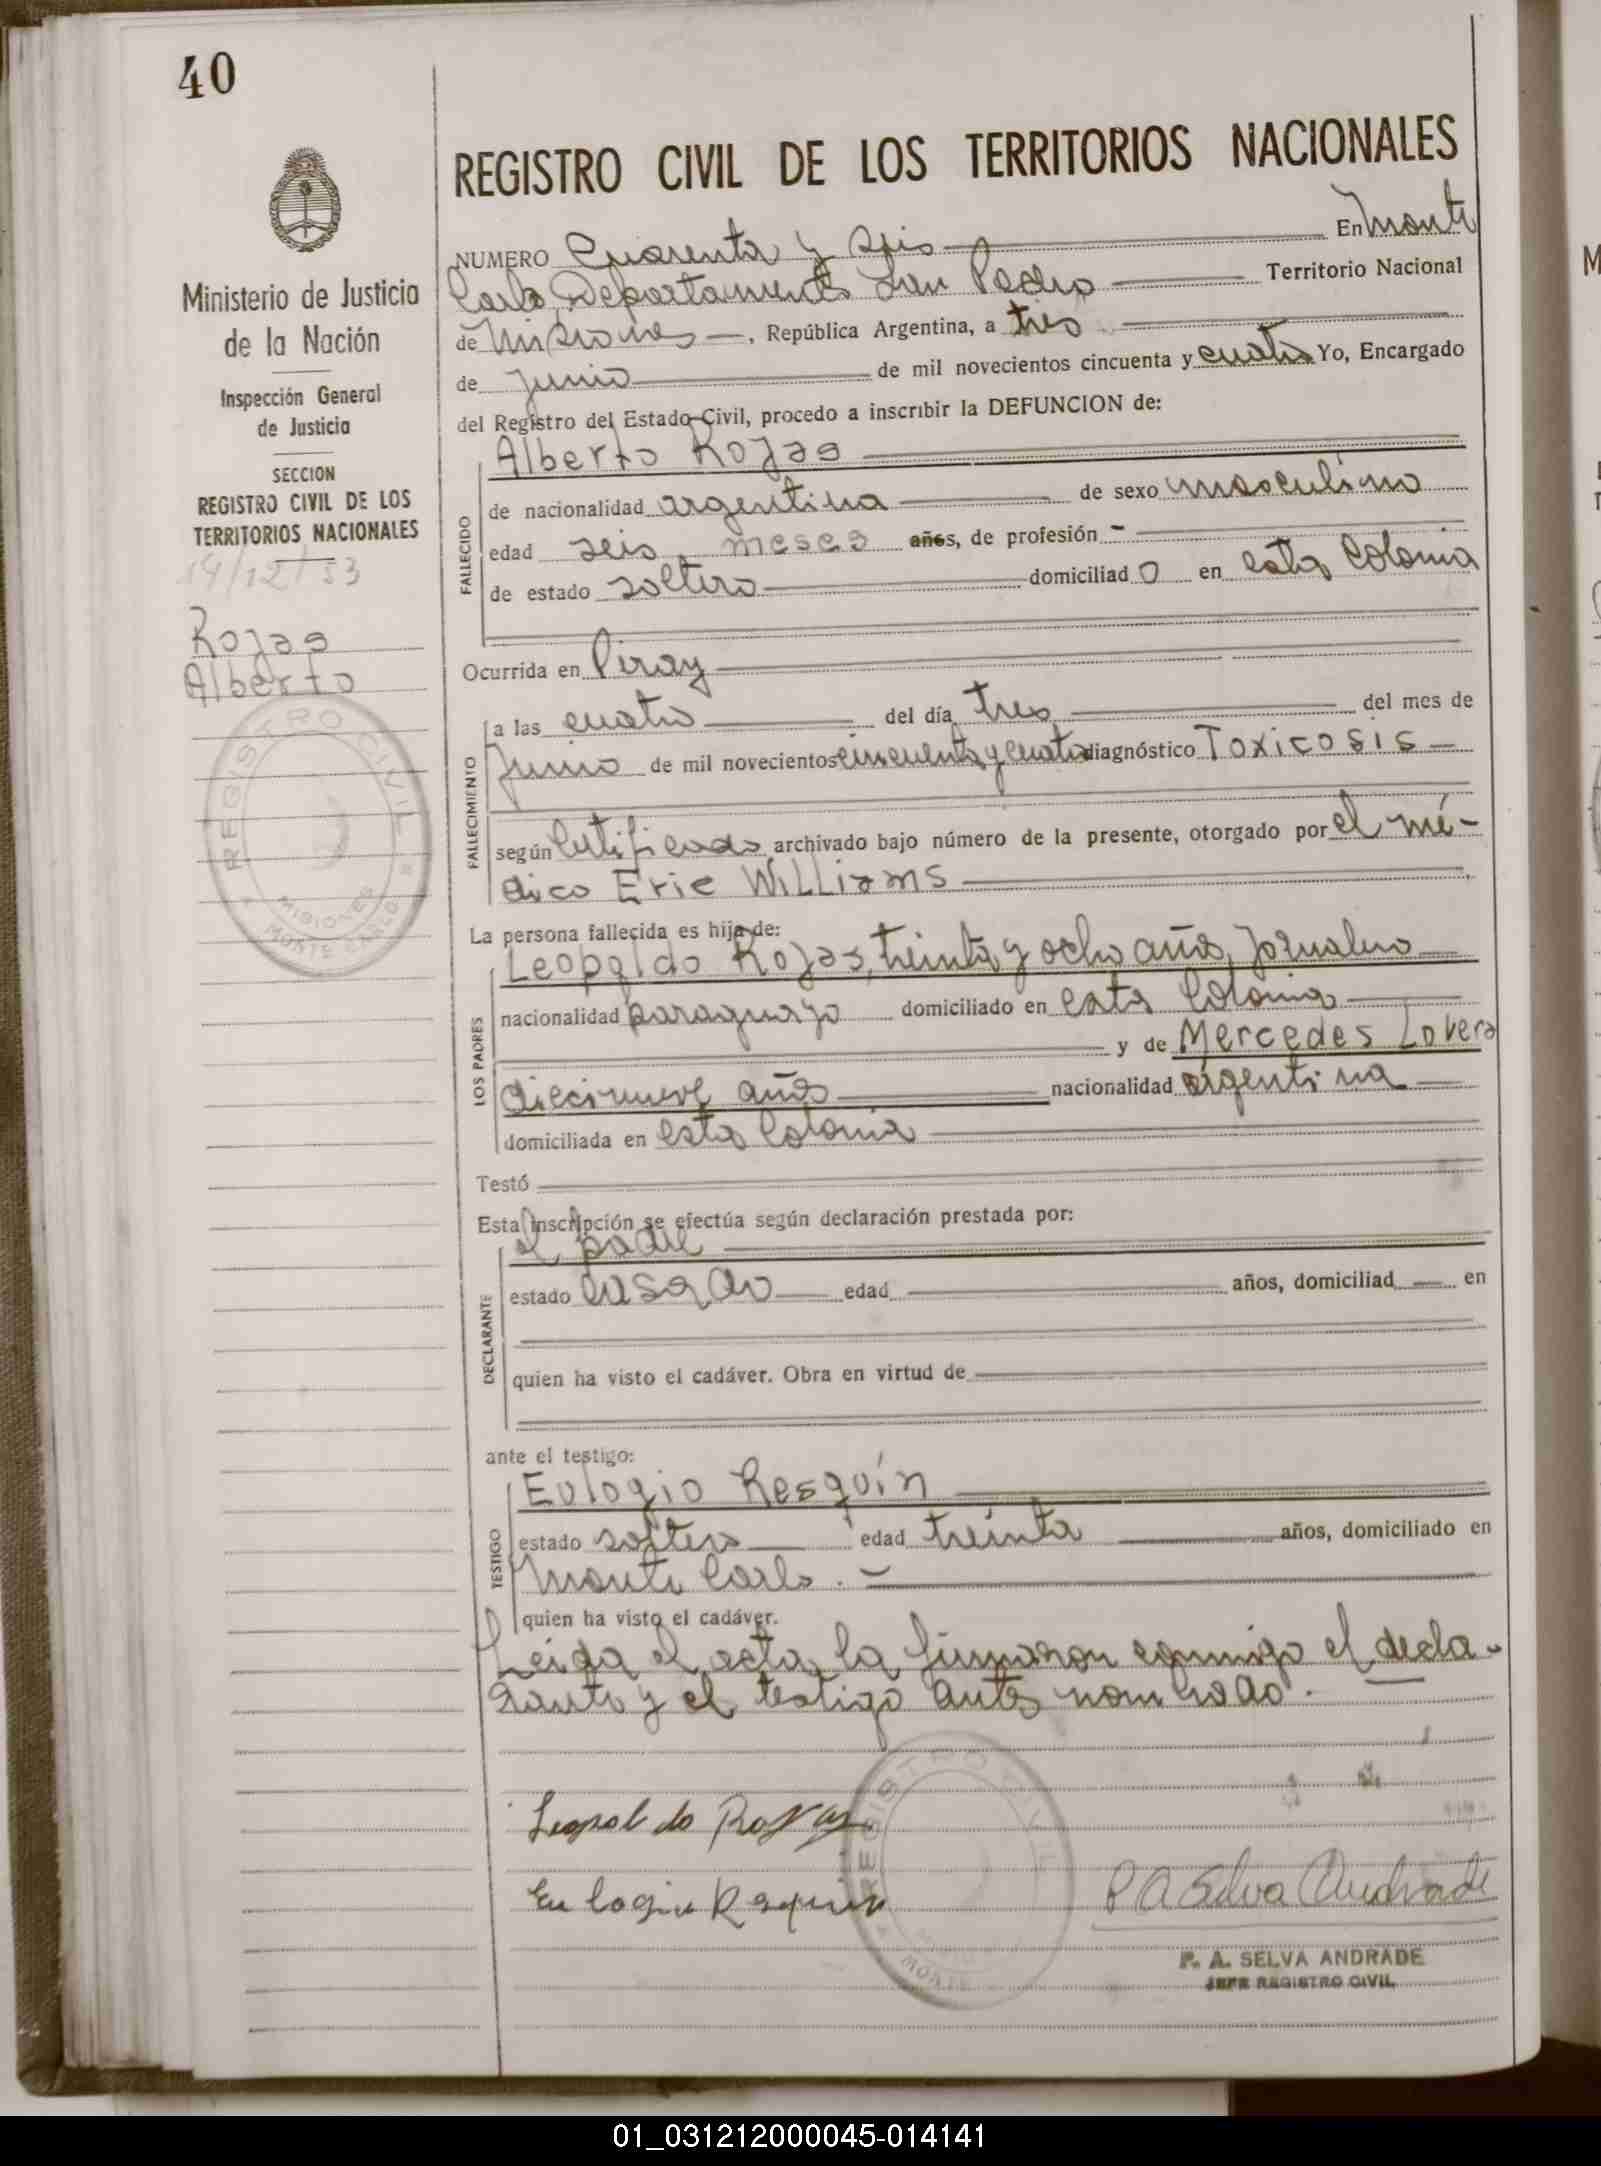 40
Ministerio de Justicia
de la Nación
Inspección General
de Justicia
SECCION
REGISTRO CIVIL DE LOS
TERRITORIOS NACIONALES
14/12/53
Rojas
Alberto
REGISTRO CIVIL
MISIONES
MONTE CARLO
REGISTRO CIVIL DE LOS TERRITORIOS NACIONALES
NUMERO Cuarenta y seis En Monte
Carlo, Departamento San Pedro Territorio Nacional
de Misiones, República Argentina, a tres
de junio de mil novecientos cincuenta y cuatro Yo, Encargado
del Registro del Estado Civil, procedo a inscribir la DEFUNCION de:
FALLECIDO
Alberto Rojas
de nacionalidad argentina de sexo masculino
edad seis meses años, de profesión -
de estado soltero domiciliado en esta Colonia
Ocurrida en Piray
FALLECIMIENTO
a las cuatro del día tres del mes de
Junio de mil novecientos cincuenta y cuatro diagnóstico Toxicosis
según Certificado archivado bajo número de la presente, otorgado por el mé-
dico Eric Williams
La persona fallecida es hija de:
LOS PADRES
Leopoldo Rojas, treinta y ocho años, jornalero
nacionalidad paraguayo domiciliado en esta Colonia
y de Mercedes Lovera
diecinueve años nacionalidad argentina
domiciliada en esta Colonia
Testó
Esta inscripción se efectúa según declaración prestada por:
DECLARANTE
el padre
estado casado edad años, domiciliad en
quien ha visto el cadáver. Obra en virtud de
ante el testigo:
TESTIGO
Eulogio Resquín
estado soltero edad treinta años, domiciliado en
Monte Carlo.
quien ha visto el cadáver.
Leida el acta, la firmaron conmigo el decla-
rante y el testigo antes nombrado.
Leopoldo Rojas
Eulogio Resquin
REGISTRO CIVIL
MONTE
P A Selva Andrade
P. A. SELVA ANDRADE
JEFE REGISTRO CIVIL
01_031212000045-014141